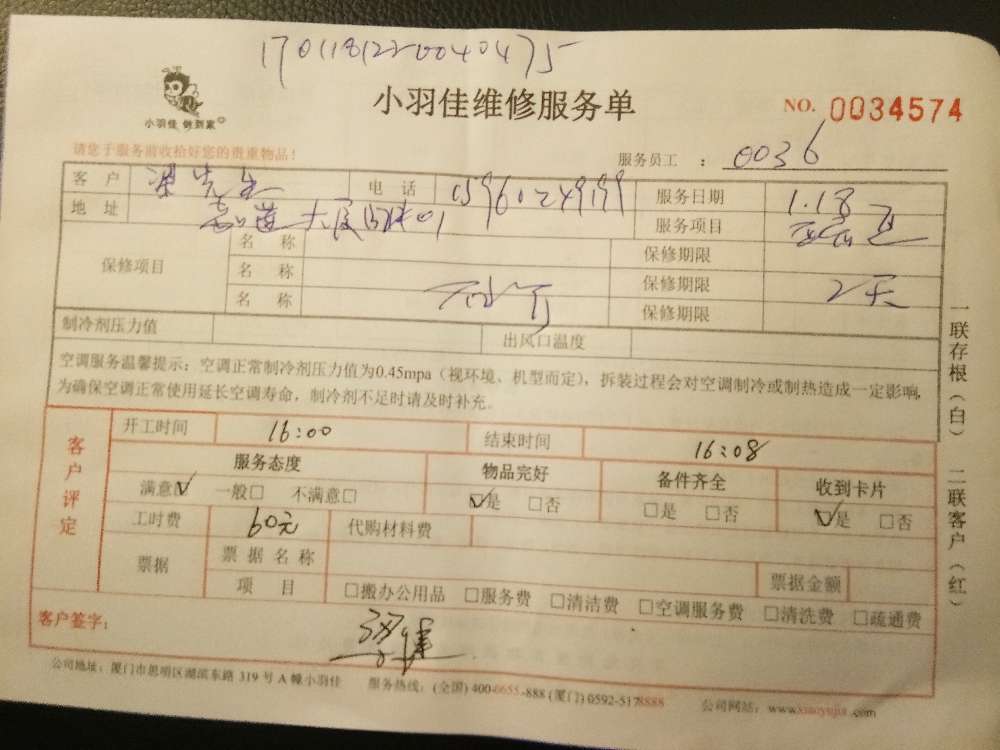 1701181220040475
小羽佳 做到家
小羽佳维修服务单
NO. 0034574
请您于服务前收拾好您的贵重物品!
服务员工 : 0036
客户 先生 电话 服务日期 1.18
地址 服务项目
保修项目 名称 保修期限
名称 保修期限 2天
名称 保修期限
制冷剂压力值 出风口温度
空调服务温馨提示:空调正常制冷剂压力值为0.45mpa(视环境、机型而定),拆装过程会对空调制冷或制热造成一定影响,
为确保空调正常使用延长空调寿命,制冷剂不足时请及时补充。
客户评定
开工时间 16:00 结束时间 16:08
服务态度 物品完好 备件齐全 收到卡片
满意☑ 一般□ 不满意□ ☑是 □否 □是 □否 ☑是 □否
工时费 60元 代购材料费
票据 票据名称
项目 □搬办公用品 □服务费 □清洁费 □空调服务费 □清洗费 □疏通费
票据金额
客户签字:
公司地址:厦门市思明区湖滨东路 319 号 A 幢小羽佳 服务热线:(全国) 400-6655-888 (厦门) 0592-5178888 公司网站:www.xiaoyujia.com
一联存根(白) 二联客户(红)